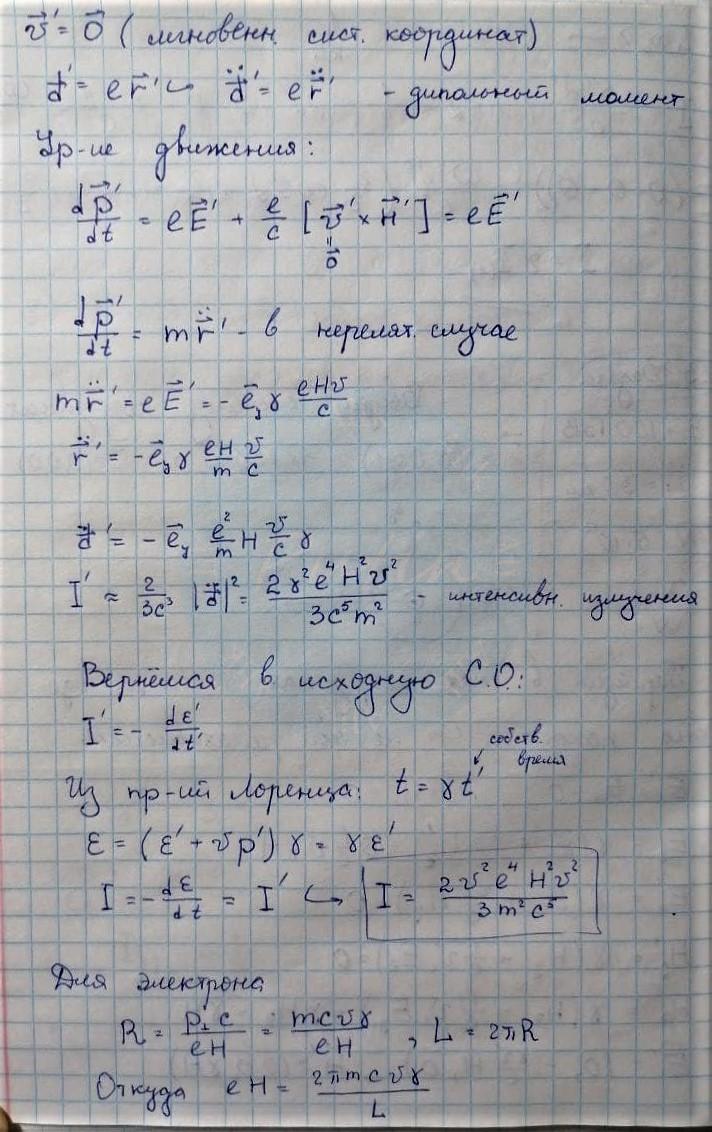 v⃗' = 0⃗ (мгновенн. сист. координат)
d⃗' = e r⃗' ↪ d̈⃗' = e r̈⃗' - дипольный момент
Ур-ие движения:
dp⃗'/dt = eE⃗' + e/c [v⃗' × H⃗'] = eE⃗'
‖
0⃗
dp⃗'/dt = m r̈⃗' - в нерелят. случае
m r̈⃗' = eE⃗' = -e⃗_y γ eHv/c
r̈⃗' = -e⃗_y γ eH/m v/c
d̈⃗' = -e⃗_y e²/m H v/c γ
I' ≈ 2/3c³ |d̈⃗|² = 2γ²e⁴H²v²/3c⁵m² - интенсивн. излучения
Вернёмся в исходную С.О.:
I' = - dε'/dt'
собств.
время
Из пр-ий Лоренца: t = γt'
ε = (ε' + vp')γ = γε'
I = -dε/dt = I' ↪ I = 2v²e⁴H²v²/3m²c⁵
Для электрона
R = p⊥c/eH = mcvγ/eH , L = 2πR
Откуда eH = 2πmcvγ/L